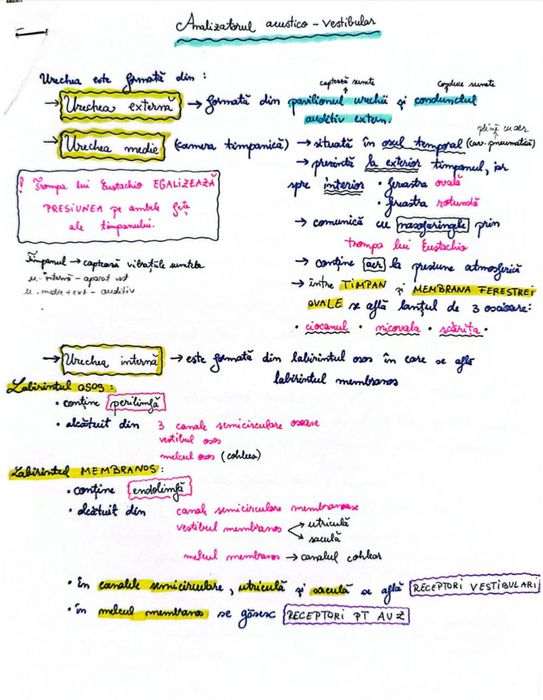 Analizatorul acustico-vestibular
Urechea este formată din:
captează sunete
conduce sunete
→ Urechea externă → formată din pavilionul urechii și conductul
auditiv extern.
plină cu aer
→ Urechea medie (camera timpanică) → situată în osul temporal (cav. pneumatică)
→ prezintă la exterior timpanul, iar
spre interior · fereastra ovală
· fereastra rotundă
! Trompa lui Eustachio EGALIZEAZĂ
PRESIUNEA pe ambele fețe
ale timpanului.
→ comunică cu nasofaringele prin
trompa lui Eustachio
Timpanul → captează vibrațiile sunetelor
u. internă - aparat vest
u. medie + ext - auditiv
→ conține aer la presiune atmosferică
→ între TIMPAN și MEMBRANA FERESTREI
OVALE se află lanțul de 3 oscioare:
· ciocanul · nicovala · scărița ·
→ Urechea internă → este formată din labirintul osos în care se află
labirintul membranos
Labirintul OSOS:
· conține perilimfă
· alcătuit din 3 canale semicirculare osoase
vestibul osos
melcul osos (cohleea)
Labirintul MEMBRANOS:
· conține endolimfă
· alcătuit din canale semicirculare membranoase
vestibul membranos → utriculă
→ saculă
melcul membranos → canalul cohlear
· în canalele semicirculare, utriculă și saculă se află RECEPTORI VESTIBULARI
· în melcul membranos se găsesc RECEPTORI PT AUZ